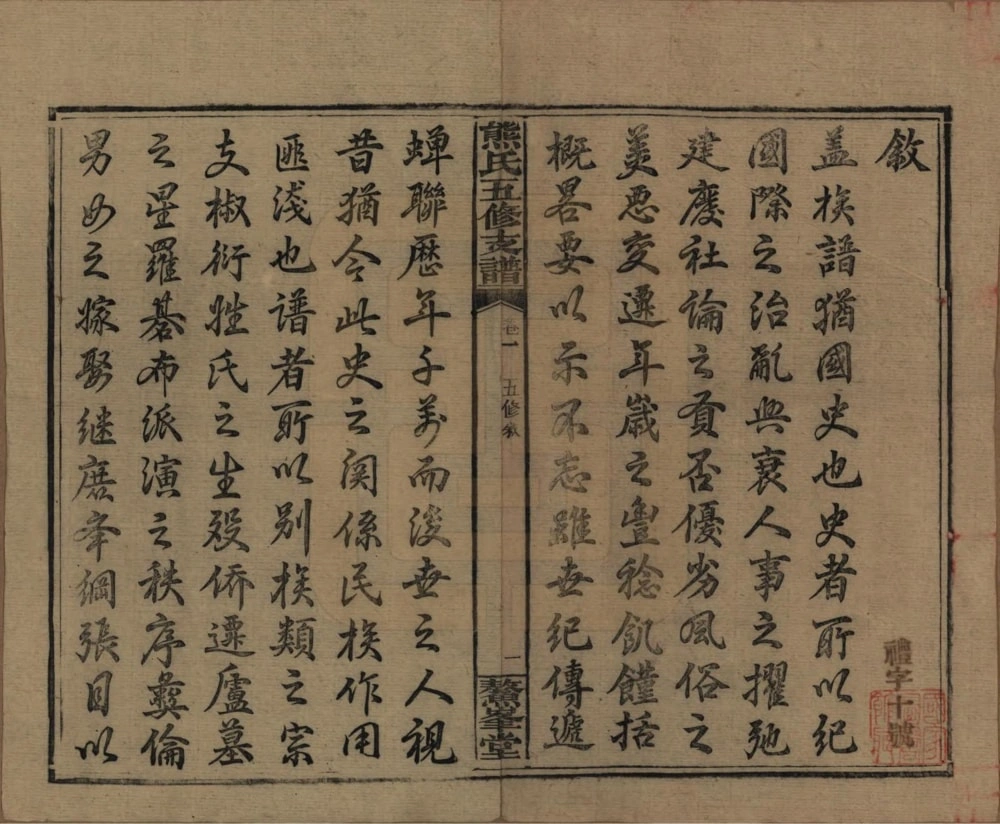 敘
蓋族譜猶國史也史者所以紀
國際之治亂與衰人事之擢弛
建廢社論之賁否優劣風俗之
美惡变遷年歲之豐稔飢饉括
概畧要以示不忘雖世紀傳遞
熊氏五修支譜
卷一
五修敘
一
堂
蟬聯歷年千萬而後世之人視
昔猶今此史之関係民族作用
匪淺也譜者所以别族類之宗
支椒衍姓氏之生殁僑遷廬墓
之星羅碁布派演之秩序彝倫
男女之嫁娶継庶牟綱張目以
禮字十號